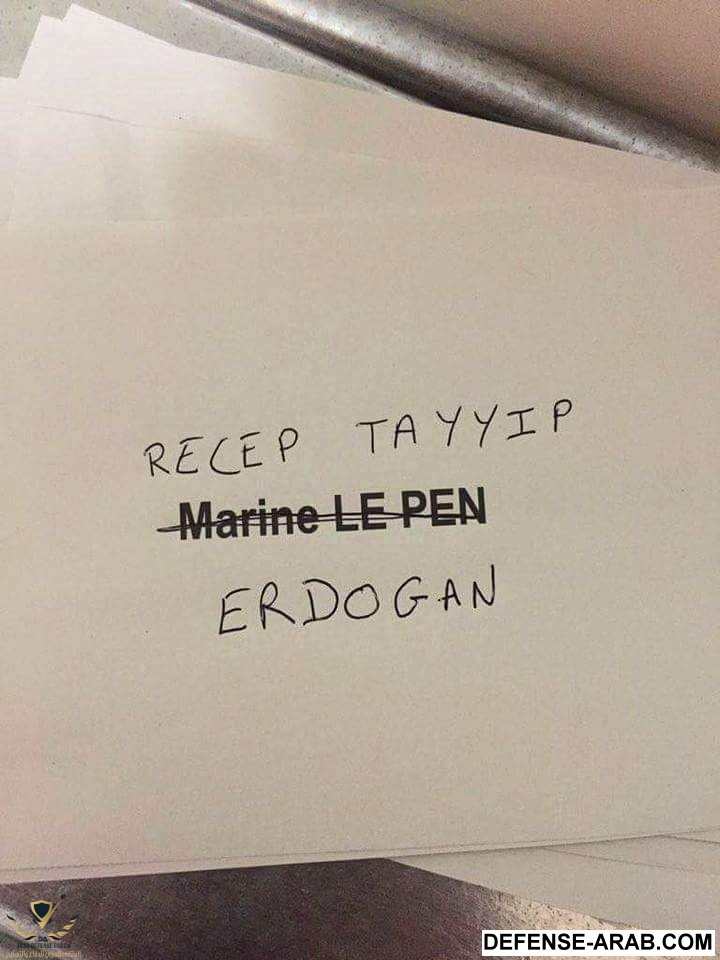 RECEP TAYYIP
Marine LE PEN
ERDOGAN
DEFENSE-ARAB.COM